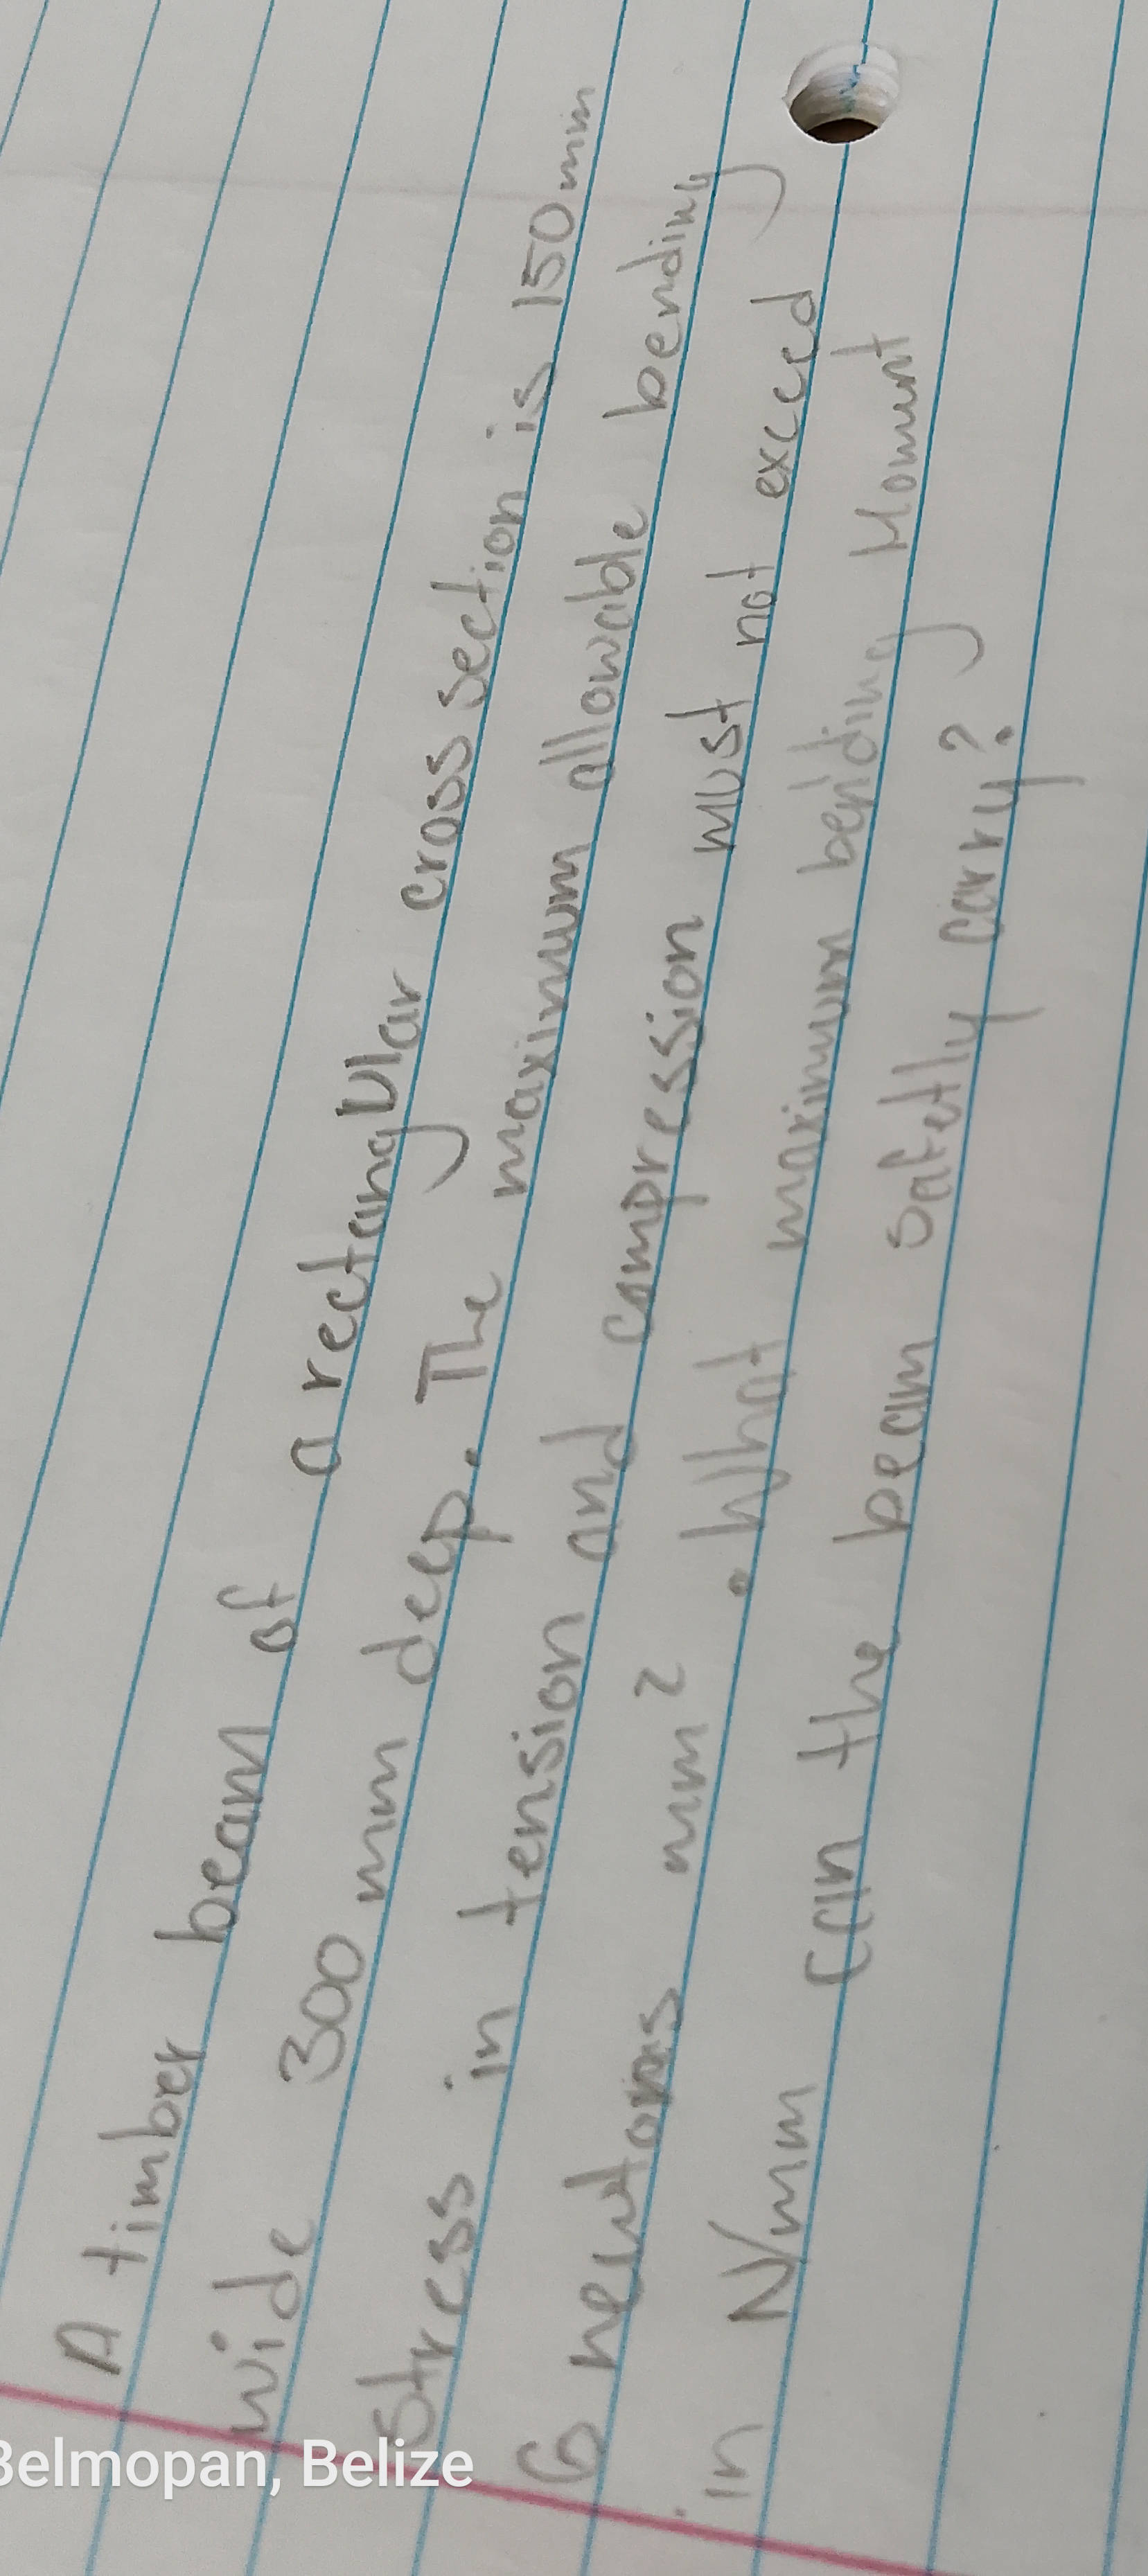 A timber beam of a rectangular cross section is 150mm
wide 300 mm deep. The maximum allowable bending
stress in tension and compression must not exceed
6 newtons mm2. What maximum bending Moment
in N/mm can the beam safetly carry?
Belmopan, Belize